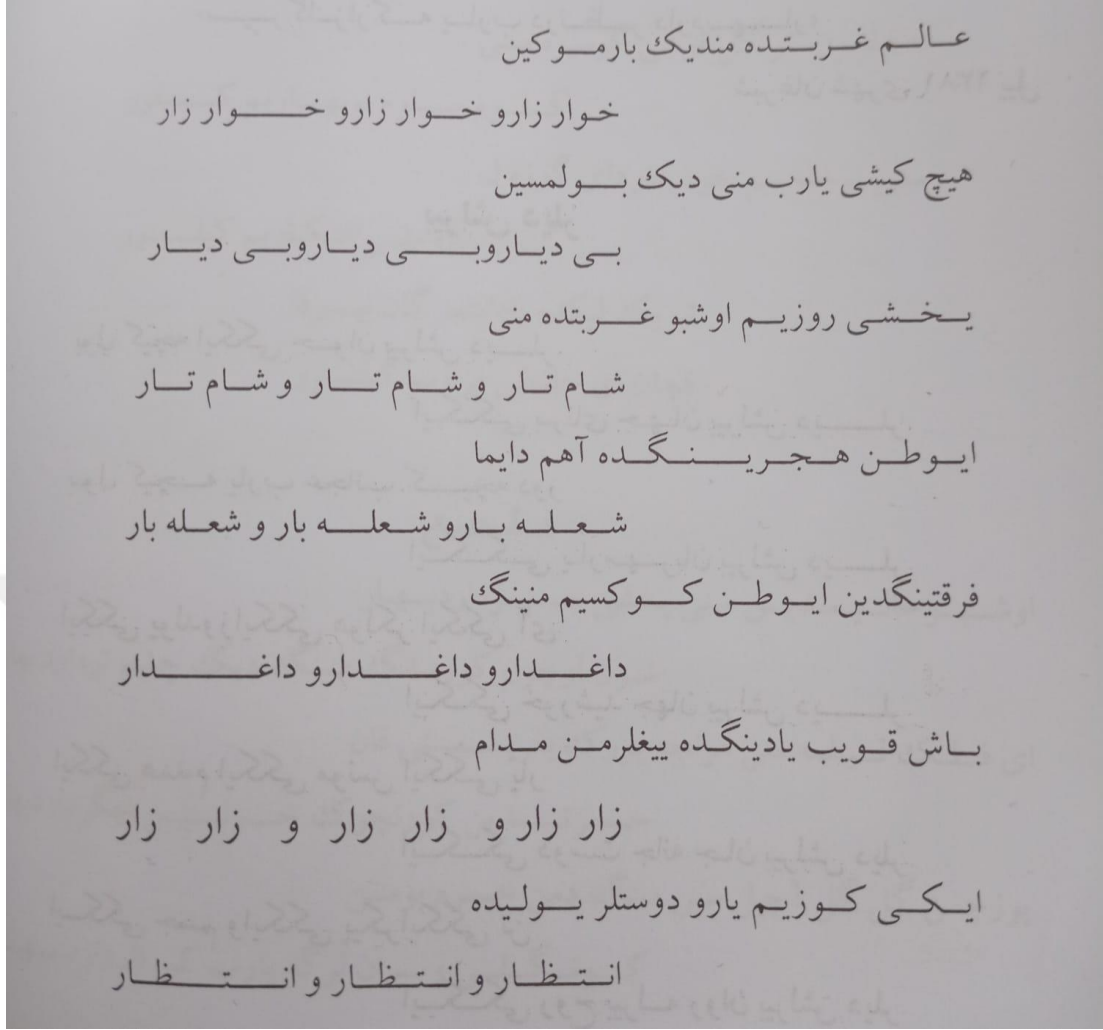 عالم غربتده مندیک بارمو کین
خوار زارو خوار زارو خوار زار
هیچ کیشی یارب منی دیک بولمسین
بی دیاروبی دیاروبی دیار
یخشی روزیم اوشبو غربتده منی
شام تار و شام تار و شام تار
ایوطن هجرینگده آهم دایما
شعله بارو شعله بار و شعله بار
فرقتینگدین ایوطن کوکسیم منینگ
داغدارو داغدارو داغدار
باش قویب یادینگده ییغلرمن مدام
زار زار و زار زار و زار زار
ایکی کوزیم یارو دوستلر یولیده
انتظار و انتظار و انتظار